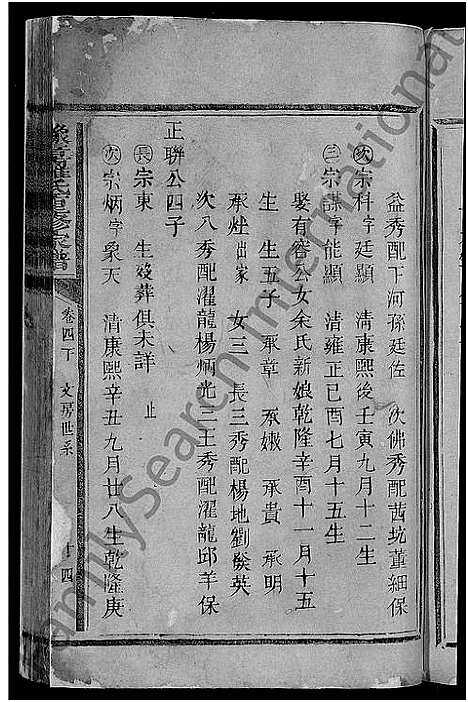 益秀配下河孫廷佐 次佛秀配茜坑董細保
㊁次宗科字廷顯 清康熙後壬寅九月十二生
三宗謀字能顯 清雍正己酉七月十五生
娶有容公女余氏新娘乾隆辛酉十一月十五
生 生五子 承章 承嫩 承貴 承明
承灶出家 女三 長三秀配楊地劉發英
次八秀配濯龍楊炳光三王秀配濯龍邱羊保
正聯公四子
長宗東 生歿葬俱未詳 止
次宗炳字象天 清康熙辛丑九月廿八生乾隆庚
豫章羅氏重修家譜
卷四下 文房世系 十四
FamilySearch International